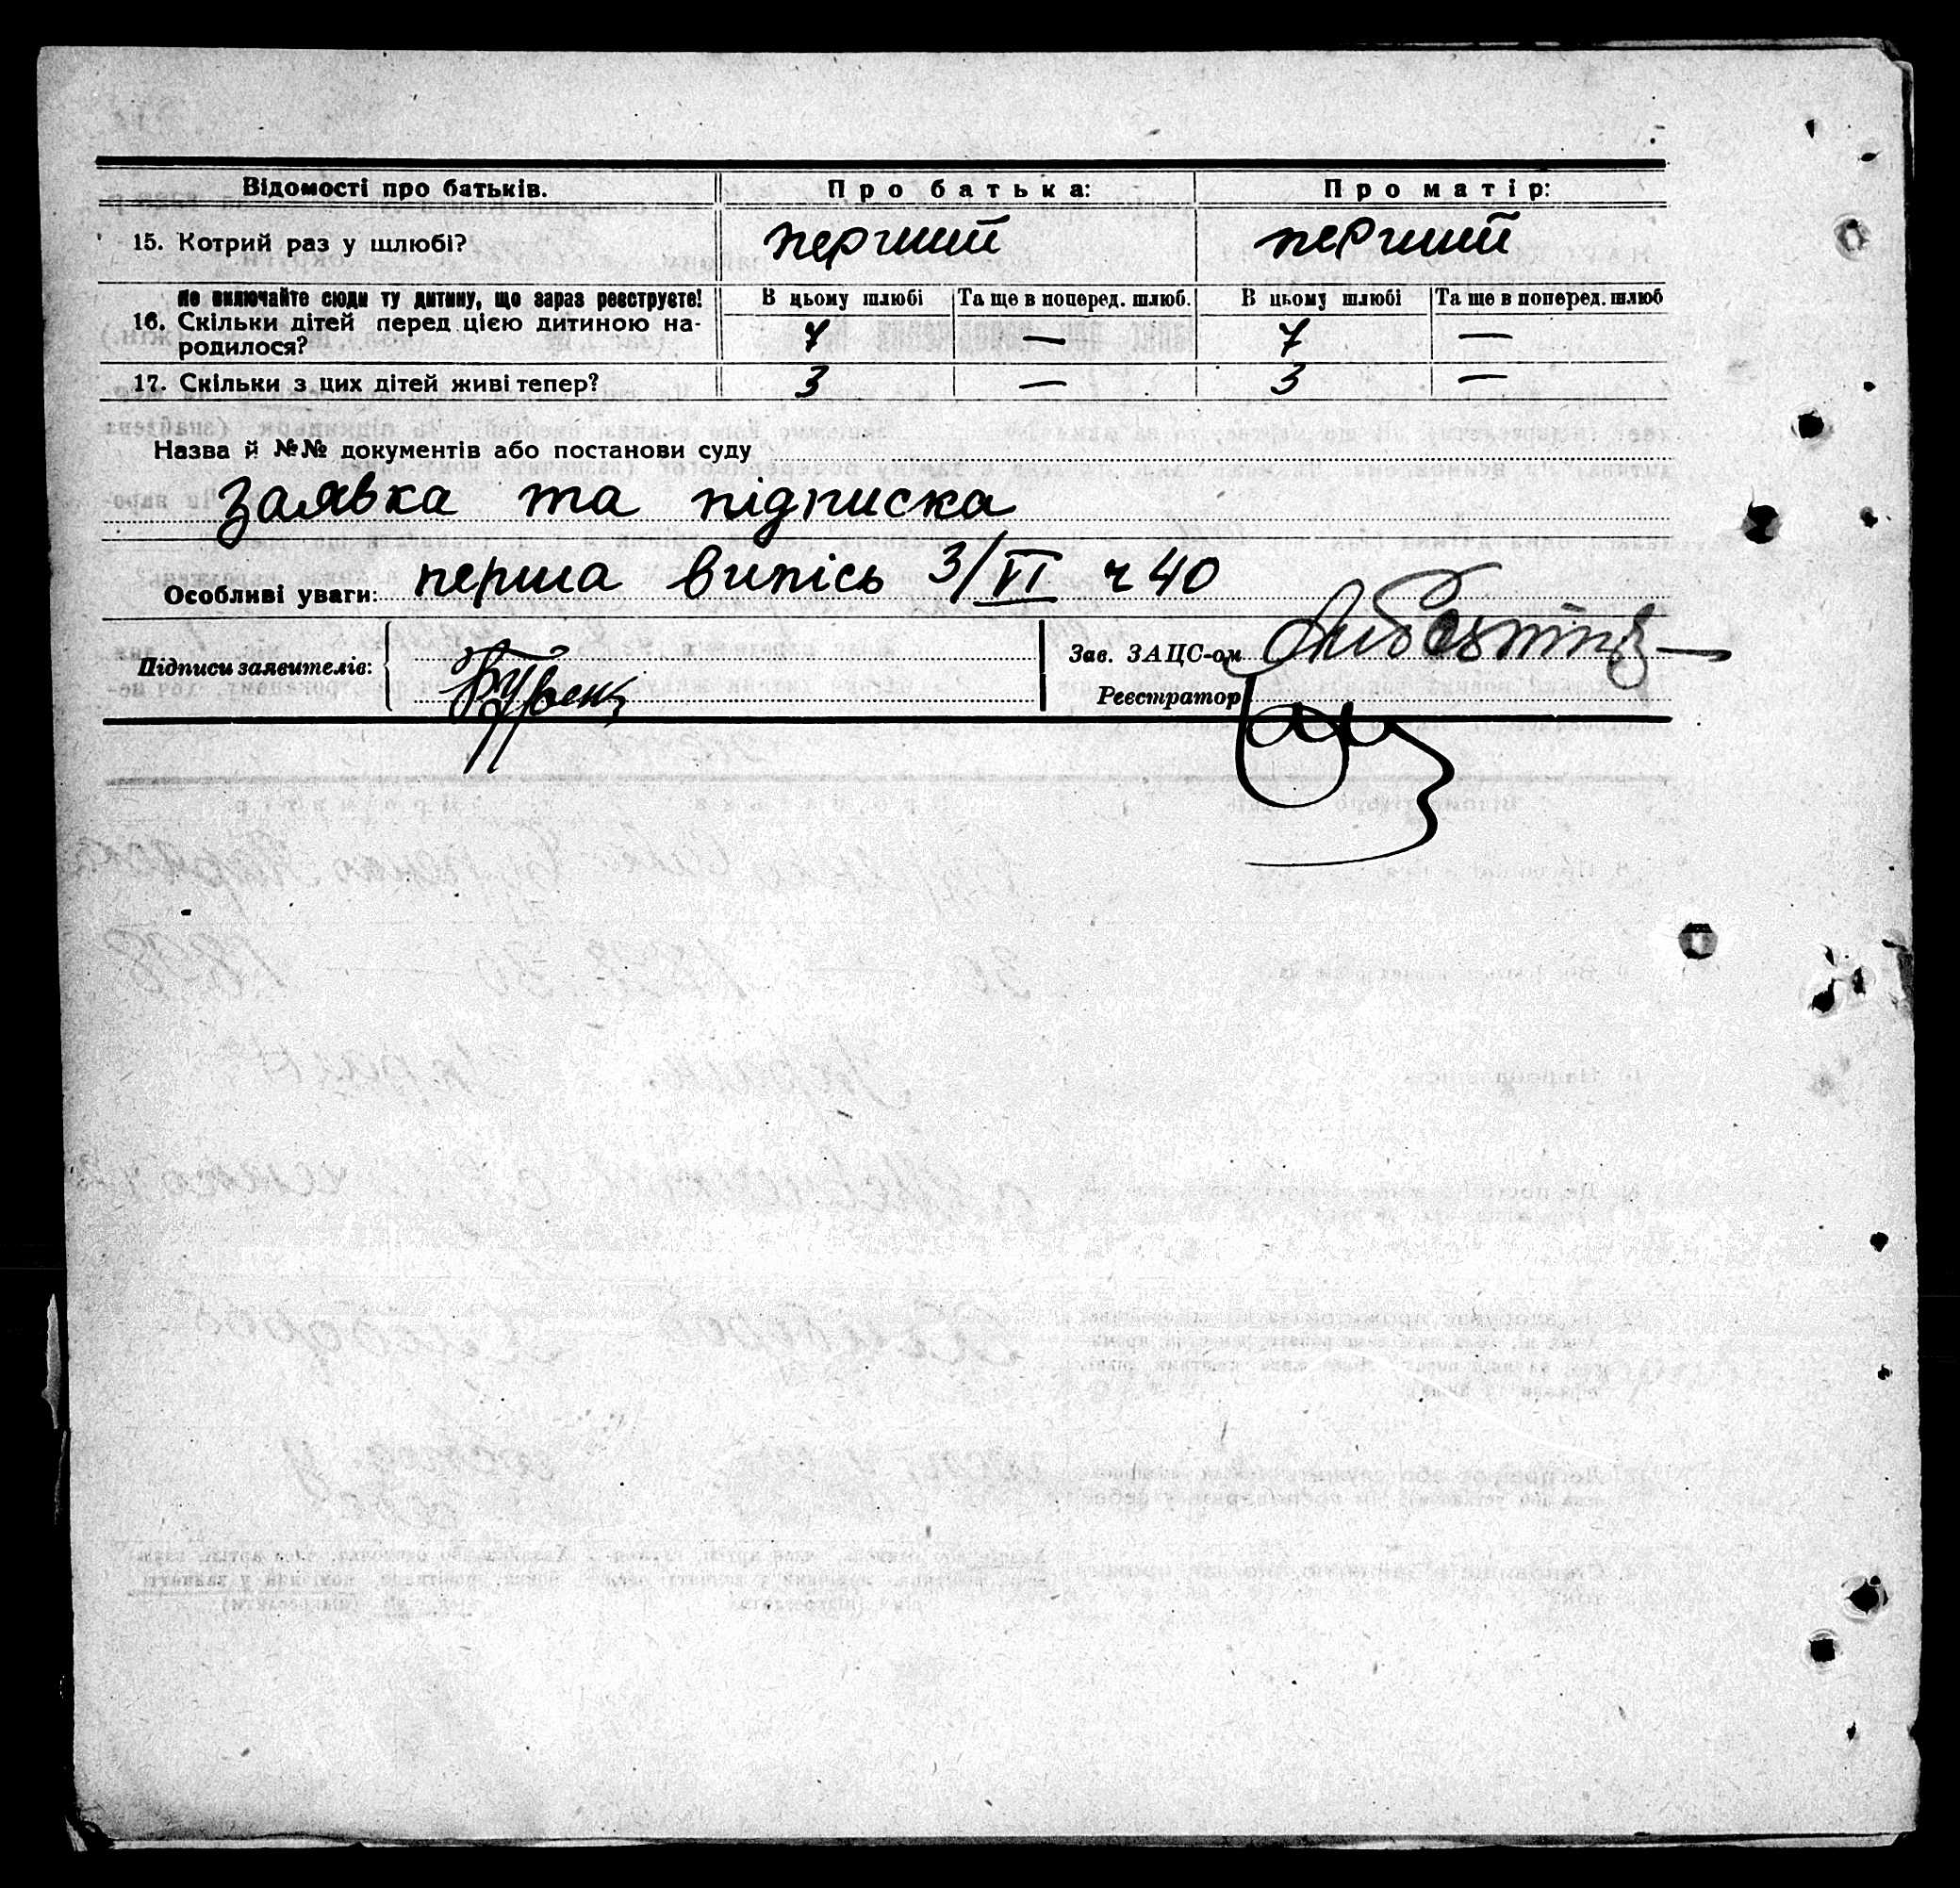 Відомості про батьків. Про батька: Про матір:
15. Котрий раз у шлюбі? перший перший
Не включайте сюди ту дитину, що зараз реєструєте! В цьому шлюбі Та ще в поперед. шлюб. В цьому шлюбі Та ще в поперед. шлюб
16. Скільки дітей перед цією дитиною на-
родилося? 7 — 7 —
17. Скільки з цих дітей живі тепер? 3 — 3 —
Назва й №№ документів або постанови суду
заявка та підписка
Особливі уваги: перша випісь 3/VI ч 40
Підписи заявителів: Зав. ЗАЦС-ом
Реєстратор